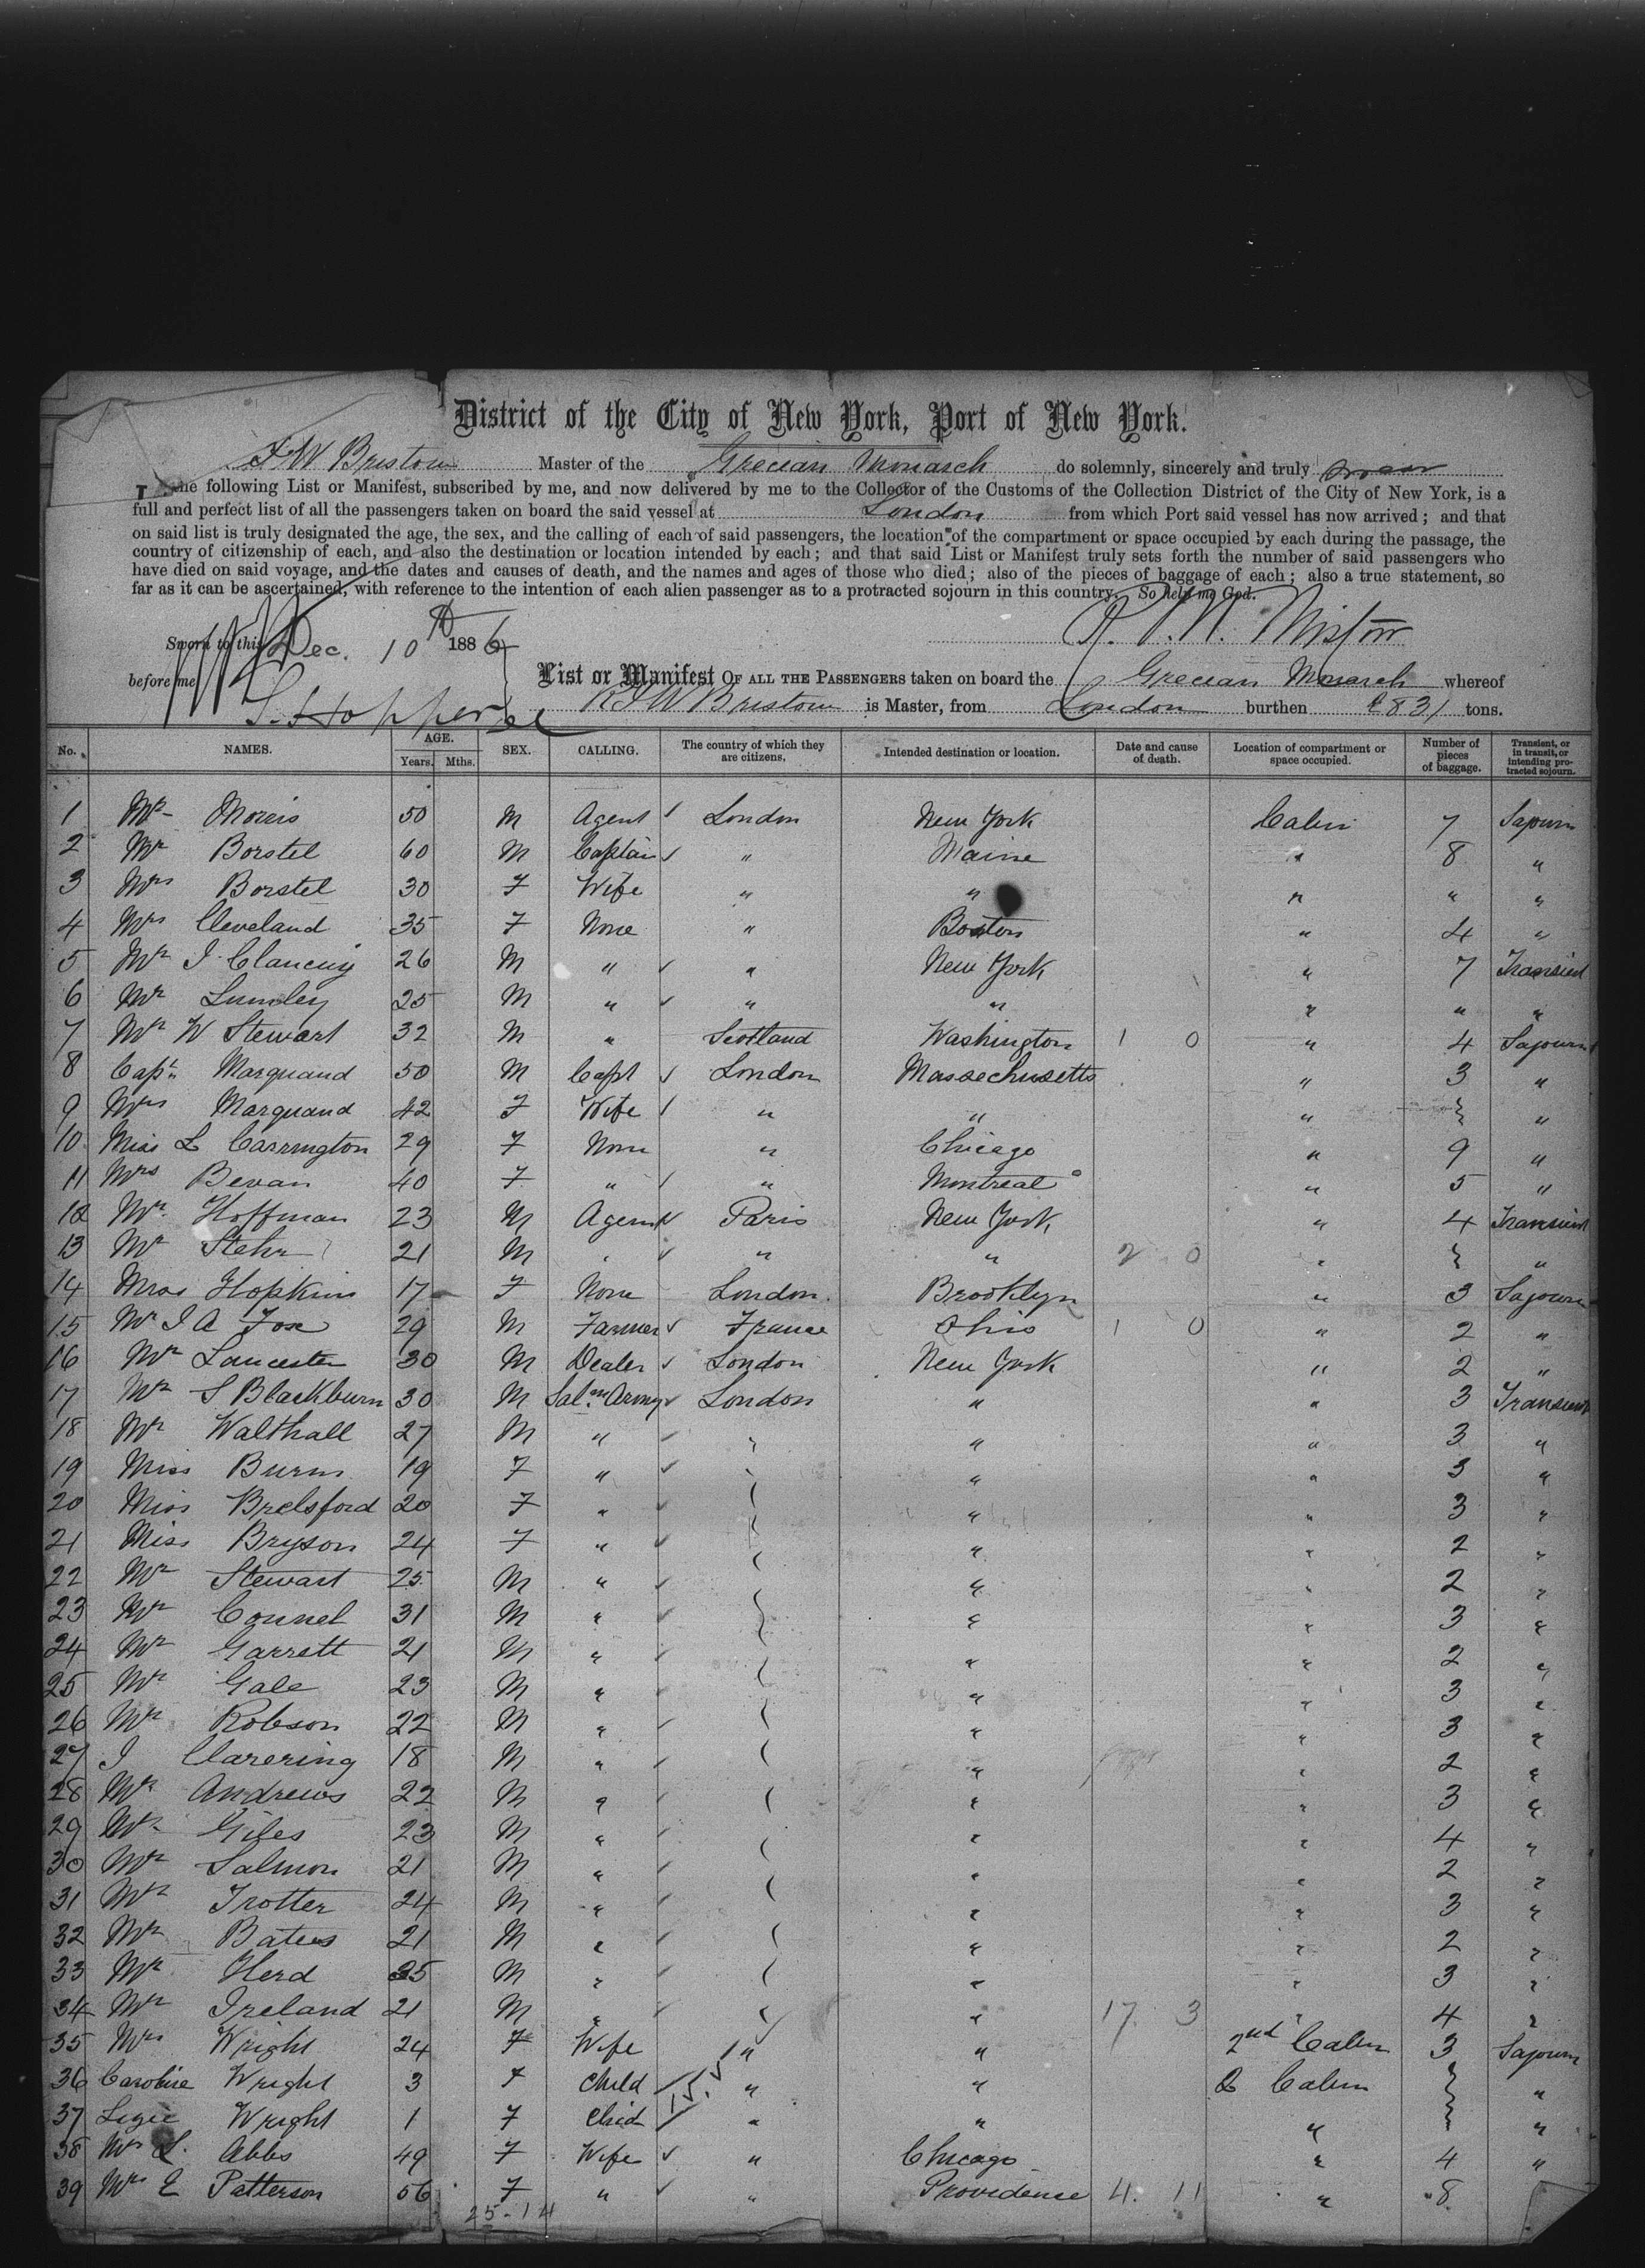 District of the City of New York, Port of New York.
F W Bristow Master of the Grecian Monarch do solemnly, sincerely and truly swear
the following List or Manifest, subscribed by me, and now delivered by me to the Collector of the Customs of the Collection District of the City of New York, is a
full and perfect list of all the passengers taken on board the said vessel at London from which Port said vessel has now arrived; and that
on said list is truly designated the age, the sex, and the calling of each of said passengers, the location of the compartment or space occupied by each during the passage, the
country of citizenship of each, and also the destination or location intended by each; and that said List or Manifest truly sets forth the number of said passengers who
have died on said voyage, and the dates and causes of death, and the names and ages of those who died; also of the pieces of baggage of each; also a true statement, so
far as it can be ascertained, with reference to the intention of each alien passenger as to a protracted sojourn in this country. So help me God.
Sworn to this Dec. 10th 1886
before me
List or Manifest OF ALL THE PASSENGERS taken on board the Grecian Monarch whereof
R F W Bristow is Master, from London burthen 2831 tons.
No. NAMES. AGE. Years. Mths. SEX. CALLING. The country of which they are citizens. Intended destination or location. Date and cause of death. Location of compartment or space occupied. Number of pieces of baggage. Transient, or in transit, or intending protracted sojourn.
1 Mr Morris 50 M Agent London New York Cabin 7 Sojourn
2 Mr Borstel 60 M Captain " Maine " 8 "
3 Mrs Borstel 30 F Wife " " " " "
4 Mrs Cleveland 35 F None " Boston " 4 "
5 Mr J Clancuy 26 M " " New York " 7 Transient
6 Mr Lumley 25 M " " " " " "
7 Mr W Stewart 32 M " Scotland Washington 1 0 " 4 Sojourn
8 Capt Marquand 50 M Capt London Massechusetts " 3 "
9 Mrs Marquand 42 F Wife " " " } "
10 Miss L Carrington 29 F None " Chicago " 9 "
11 Mrs Bevan 40 F " " Montreal " 5 "
12 Mr Hoffman 23 M Agent Paris New York " 4 Transient
13 Mr Stehr 21 M " " " 2 0 " } "
14 Miss Hopkins 17 F None London Brooklyn " 3 Sojourn
15 Mr J A Fox 29 M Farmer France Ohio 1 0 " 2 "
16 Mr Lancester 30 M Dealer London New York " 2 "
17 Mr S Blackburn 30 M Saln Army London " " 3 Transient
18 Mr Walthall 27 M " " " " 3 "
19 Miss Burns 19 F " " " " 3 "
20 Miss Brelsford 20 F " " " " 3 "
21 Miss Bryson 24 F " " " " 2 "
22 Mr Stewart 25 M " " " " 2 "
23 Mr Connel 31 M " " " " 3 "
24 Mr Garrett 21 M " " " " 2 "
25 Mr Gale 23 M " " " " 3 "
26 Mr Robson 22 M " " " " 3 "
27 J Clarering 18 M " " " " 2 "
28 Mr Andrews 22 M " " " " 3 "
29 Mr Giles 23 M " " " " 4 "
30 Mr Salmon 21 M " " " " 2 "
31 Mr Trotter 24 M " " " " 3 "
32 Mr Bates 21 M " " " " 2 "
33 Mr Herd 25 M " " " " 3 "
34 Mr Ireland 21 M " " " 17 3 " 4 "
35 Mrs Wright 24 F Wife " " 2nd Cabin 3 Sojourn
36 Caroline Wright 3 F Child " " 2 Cabin } "
37 Lizie Wright 1 F Chid " " " } "
38 Mrs S. Abbs 49 F Wife " Chicago " 4 "
39 Mrs E Patterson 56 F " " Providence 4. 11 " 8
25-14